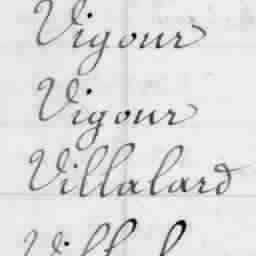 Vigour
Vigour
Villalard